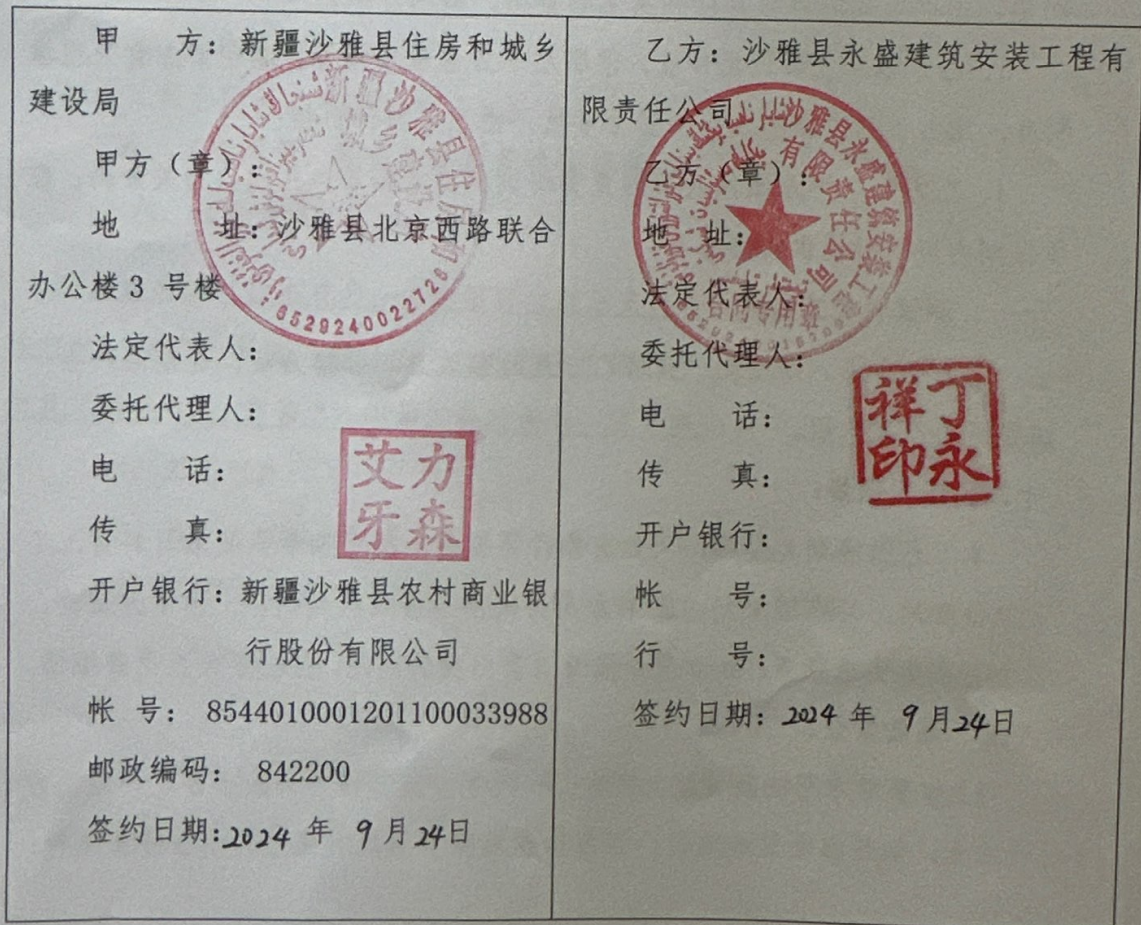 甲 方：新疆沙雅县住房和城乡
建设局
甲方（章）：
地 址：沙雅县北京西路联合
办公楼3 号楼
法定代表人：
委托代理人：
电 话：
传 真：
开户银行：新疆沙雅县农村商业银
行股份有限公司
帐 号： 8544010001201100033988
邮政编码： 842200
签约日期:2024 年 9 月24日
新疆沙雅县住
城乡建设
6529240022726
艾力
牙森
乙方：沙雅县永盛建筑安装工程有
限责任公司
乙方（章）：
地 址：
法定代表人：
委托代理人：
电 话：
传 真：
开户银行：
帐 号：
行 号：
签约日期：2024 年 9 月24日
沙雅县永盛建筑安装工程
有限责任公司
合同专用章
丁永
祥印